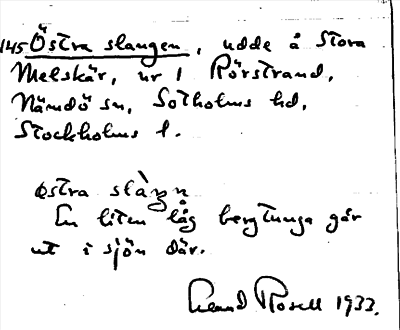 145 Östra slangen, udde å Stora
Melskär, nr 1 Rörstrand,
Nämdö sn, Sotholms hd,
Stockholms l.
østra slàŋn
En liten låg bergtunga går
ut i sjön där.
Rosell 1933.